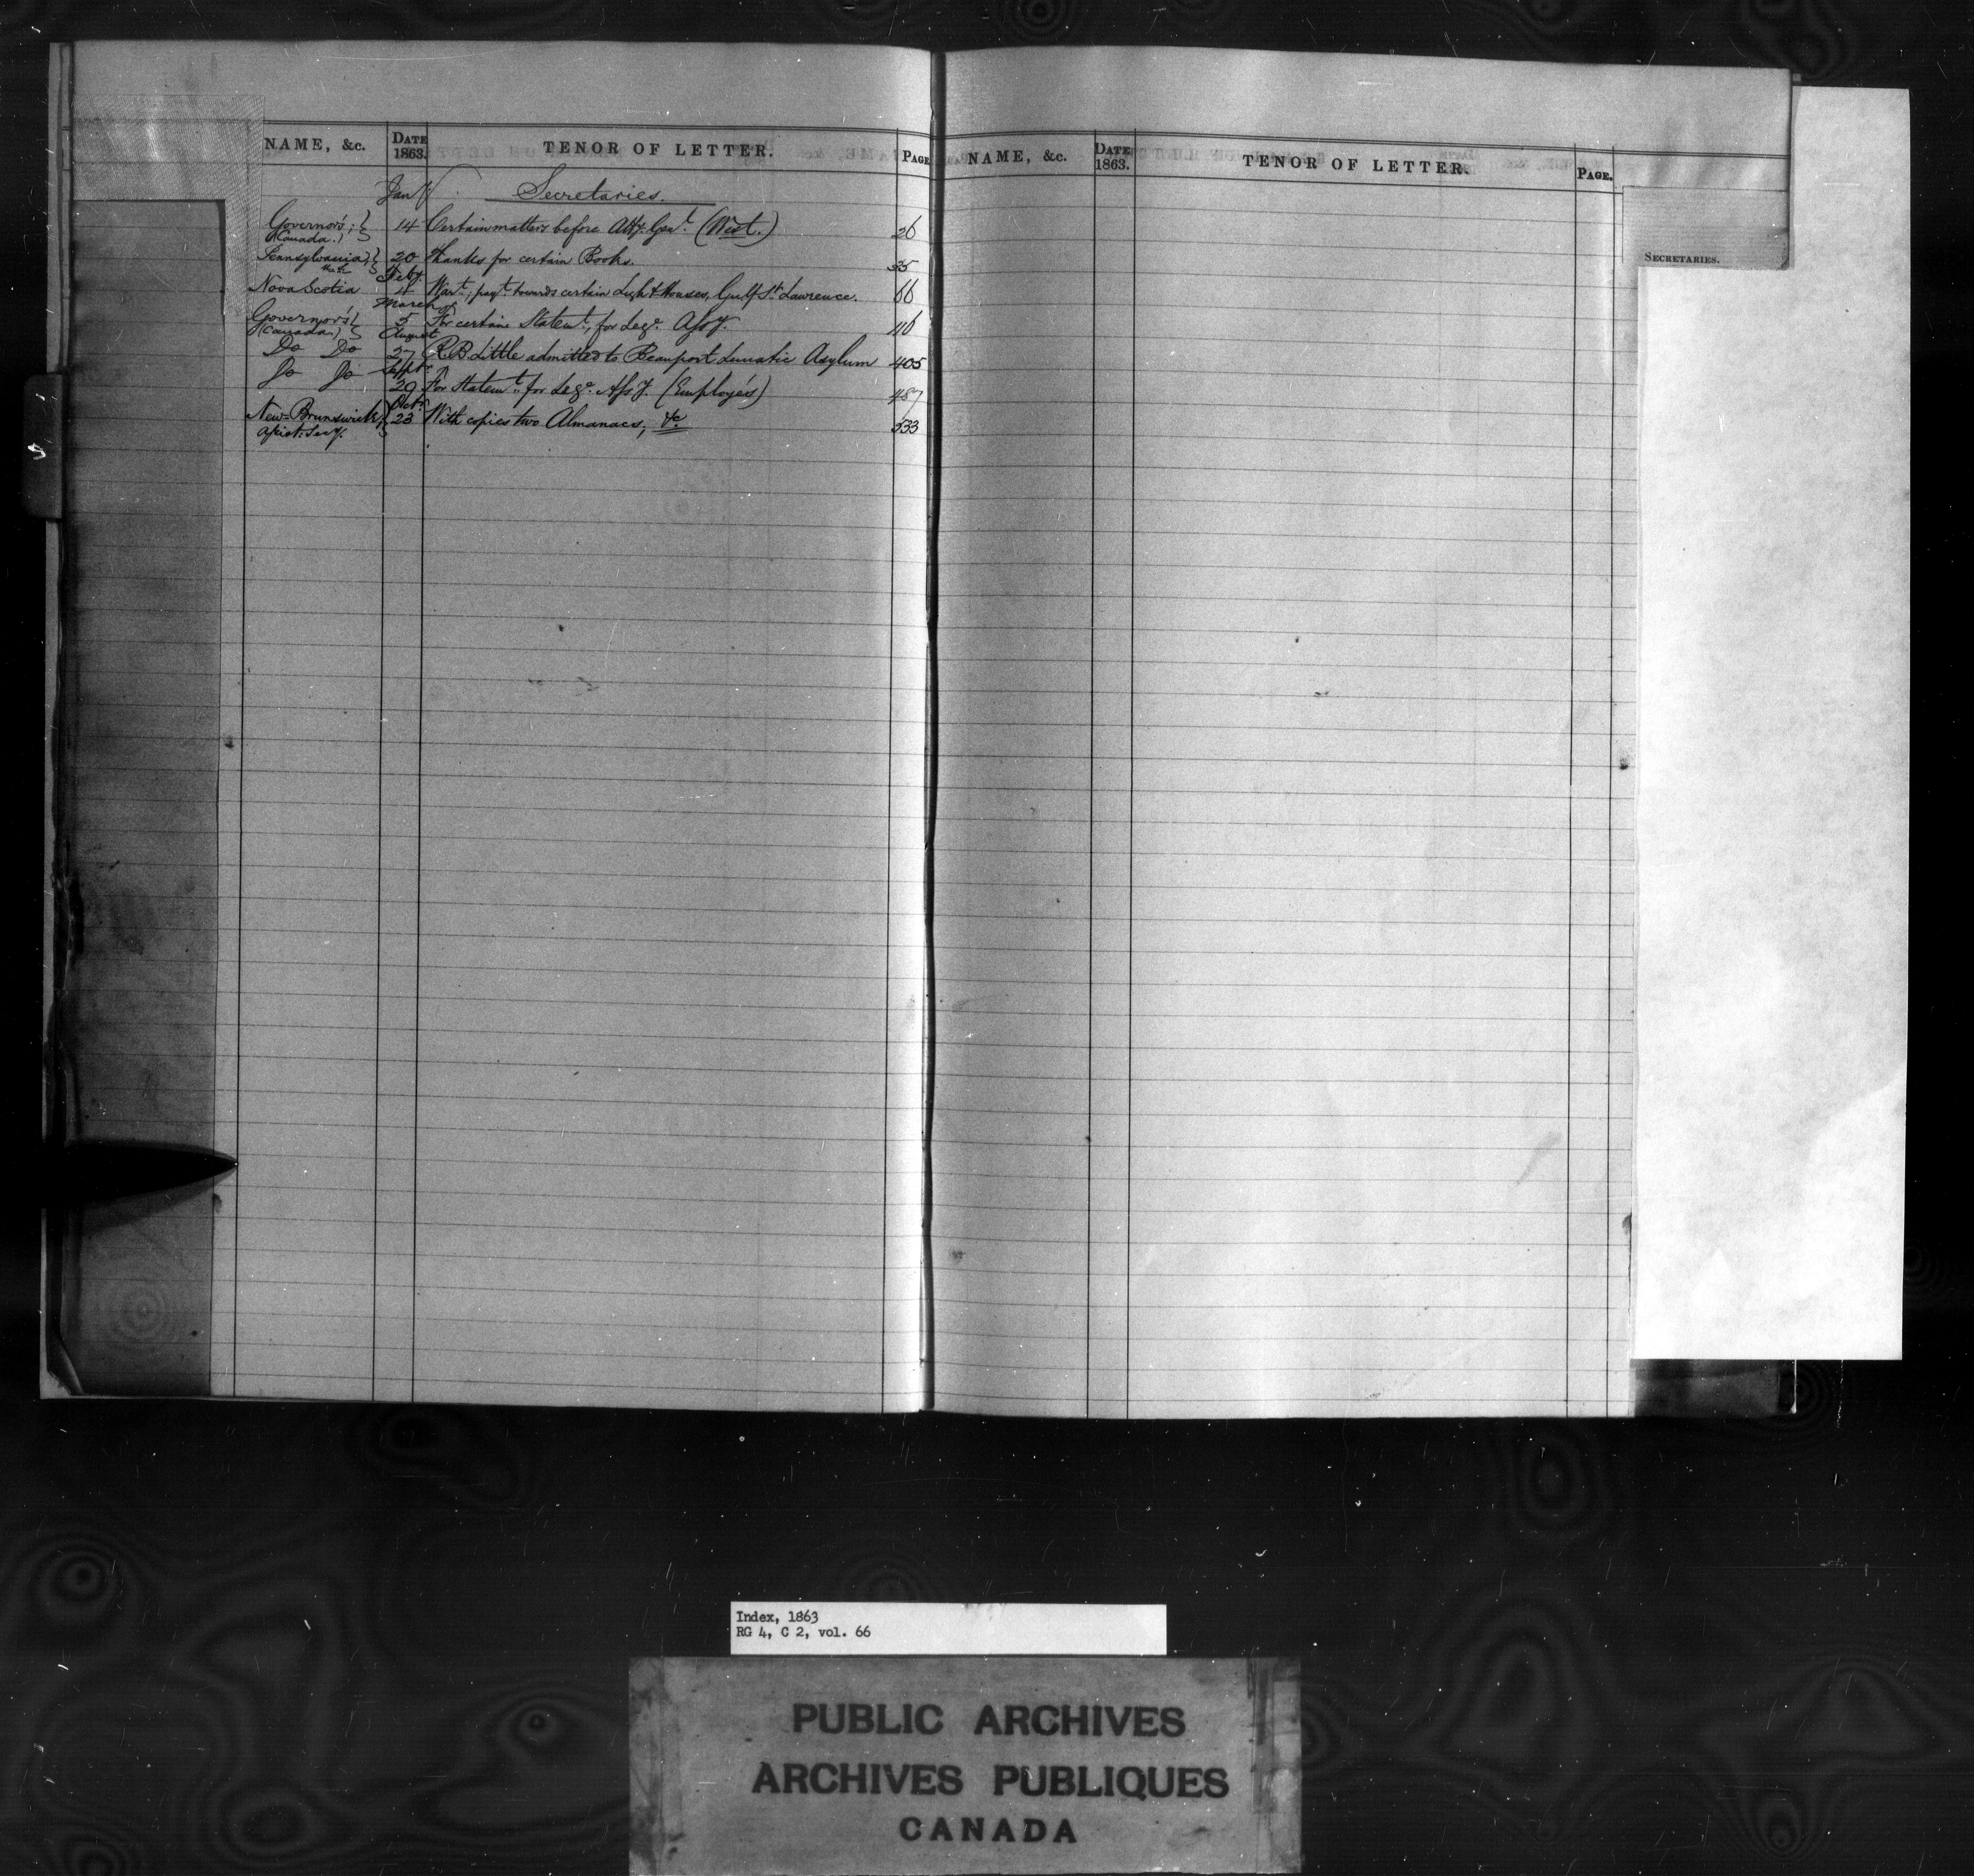 NAME, &c. DATE 1863. TENOR OF LETTER. PAGE
Jany Secretaries.
Governor's; (Canada.) 14 Certain matters before Atty. Genl. (West.) 26
Pennsylvania, State 20 Thanks for certain Books. 35
Feby
Nova Scotia 4 Wart., payt. towards certain Light Houses, Gulf St. Lawrence. 66
March
Governor's (Canada.) 5 For certain Statemt., for Lege. Assy. 116
August
Do Do 27 R. B. Little admitted to Beauport Lunatic Asylum 405
Septr
Do Do 29 For Statemt. for Lege. Assy. (Employés) 487
Octr.
New-Brunswick, Assist: Secy. 23 With copies two Almanacs, &c. 533
NAME, &c. DATE 1863. TENOR OF LETTER. PAGE.
SECRETARIES.
Index, 1863
RG 4, C 2, vol. 66
PUBLIC ARCHIVES
ARCHIVES PUBLIQUES
CANADA